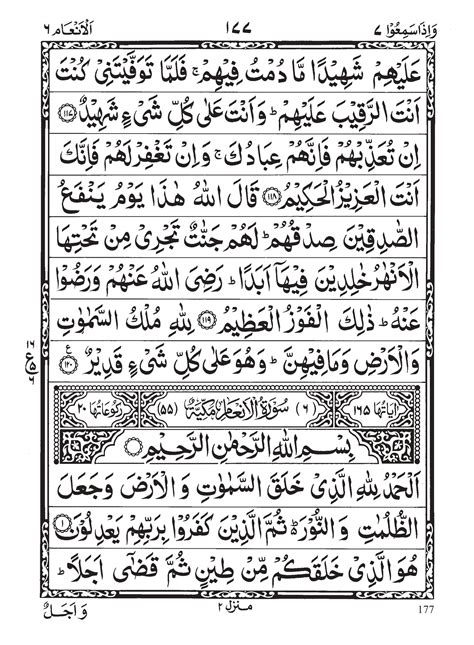 وَاِذَا سَمِعُوْا ٧ ١٧٧ اَلْاَنْعَام ٦
عَلَيْهِمْ شَهِيْدًا مَّا دُمْتُ فِيْهِمْ ۚ فَلَمَّا تَوَفَّيْتَنِيْ كُنْتَ
اَنْتَ الرَّقِيْبَ عَلَيْهِمْ ؕ وَاَنْتَ عَلٰى كُلِّ شَيْءٍ شَهِيْدٌ ١١٧
اِنْ تُعَذِّبْهُمْ فَاِنَّهُمْ عِبَادُكَ ۚ وَاِنْ تَغْفِرْ لَهُمْ فَاِنَّكَ
اَنْتَ الْعَزِيْزُ الْحَكِيْمُ ١١٨ قَالَ اللّٰهُ هٰذَا يَوْمُ يَنْفَعُ
الصّٰدِقِيْنَ صِدْقُهُمْ ؕ لَهُمْ جَنّٰتٌ تَجْرِيْ مِنْ تَحْتِهَا
الْاَنْهٰرُ خٰلِدِيْنَ فِيْهَاۤ اَبَدًا ؕ رَضِيَ اللّٰهُ عَنْهُمْ وَرَضُوْا
عَنْهُ ؕ ذٰلِكَ الْفَوْزُ الْعَظِيْمُ ١١٩ لِلّٰهِ مُلْكُ السَّمٰوٰتِ
وَالْاَرْضِ وَمَا فِيْهِنَّ ؕ وَهُوَ عَلٰى كُلِّ شَيْءٍ قَدِيْرٌ ١٢٠ ع
١٦
ع ٥
٦
اٰيَاتُهَا ١٦٥ (٦) سُوْرَةُ الْاَنْعَامِ مَكِّيَّةٌ (٥٥) رُكُوْعَاتُهَا ٢٠
بِسْمِ اللّٰهِ الرَّحْمٰنِ الرَّحِيْمِ
اَلْحَمْدُ لِلّٰهِ الَّذِيْ خَلَقَ السَّمٰوٰتِ وَالْاَرْضَ وَجَعَلَ
الظُّلُمٰتِ وَالنُّوْرَ ؕ ثُمَّ الَّذِيْنَ كَفَرُوْا بِرَبِّهِمْ يَعْدِلُوْنَ ١
هُوَ الَّذِيْ خَلَقَكُمْ مِّنْ طِيْنٍ ثُمَّ قَضٰۤى اَجَلًا ؕ
177 منزل ٢ وَاَجَلٌ